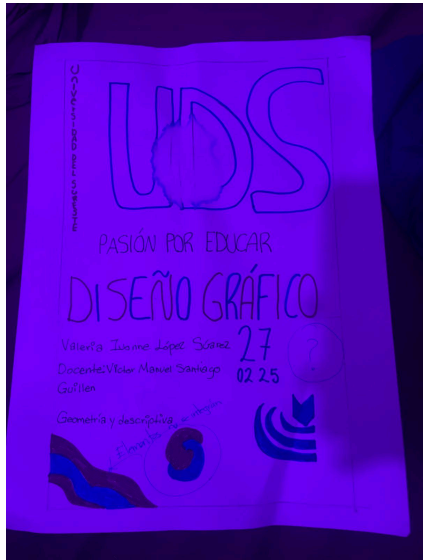 UNIVERSIDAD DEL SURESTE
UDS
PASIÓN POR EDUCAR
DISEÑO GRÁFICO
Valeria Ivonne López Suárez
27
02 25
?
Docente: Víctor Manuel Santiago
Guillen
Geometria y descriptiva
Elementos